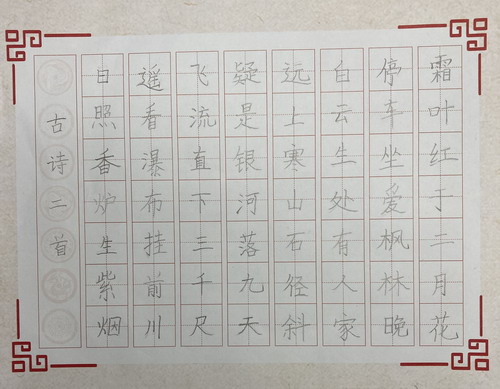 古诗二首
日照香炉生紫烟
遥看瀑布挂前川
飞流直下三千尺
疑是银河落九天
远上寒山石径斜
白云生处有人家
停车坐爱枫林晚
霜叶红于二月花